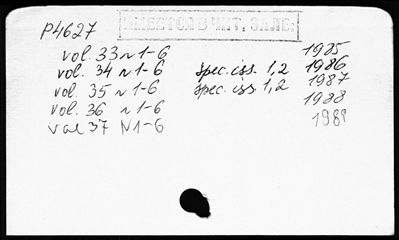 P4627
vol. 33 N 1-6 1985
vol. 34 N 1-6 spec. iss. 1,2 1986
vol. 35 N 1-6 spec. iss 1,2 1987
vol. 36 N 1-6 1988
vol 37 N 1-6 1989